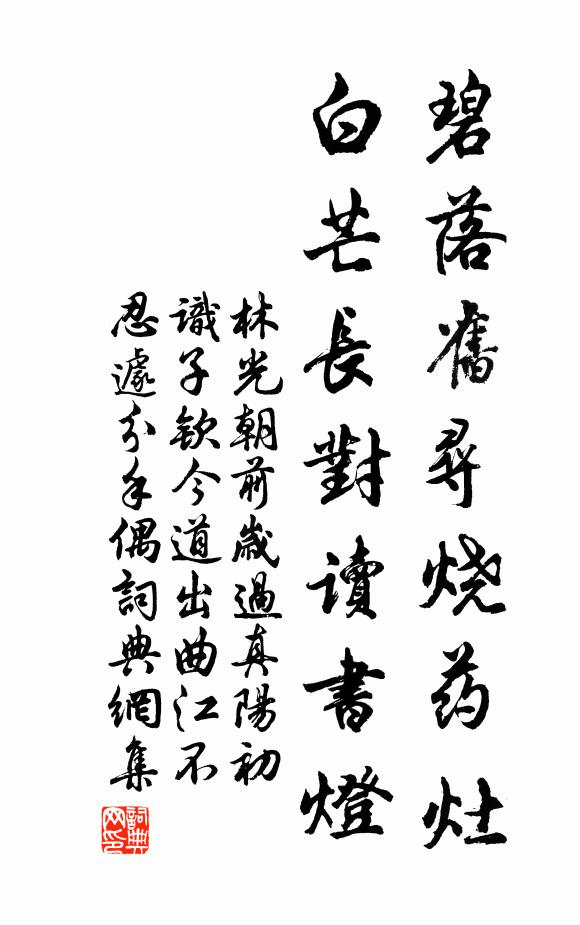 碧落舊尋烧药灶
白芒長對讀書燈
林光朝前歲過真陽初
識子欽今道出曲江不
忍遽分手偶詞典網集
詞典網印